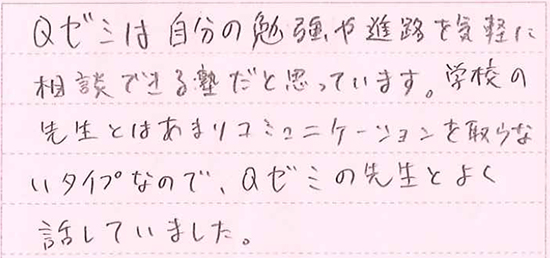 Qゼミは自分の勉強や進路を気軽に
相談できる塾だと思っています。学校の
先生とはあまりコミュニケーションを取らな
いタイプなので、Qゼミの先生とよく
話していました。